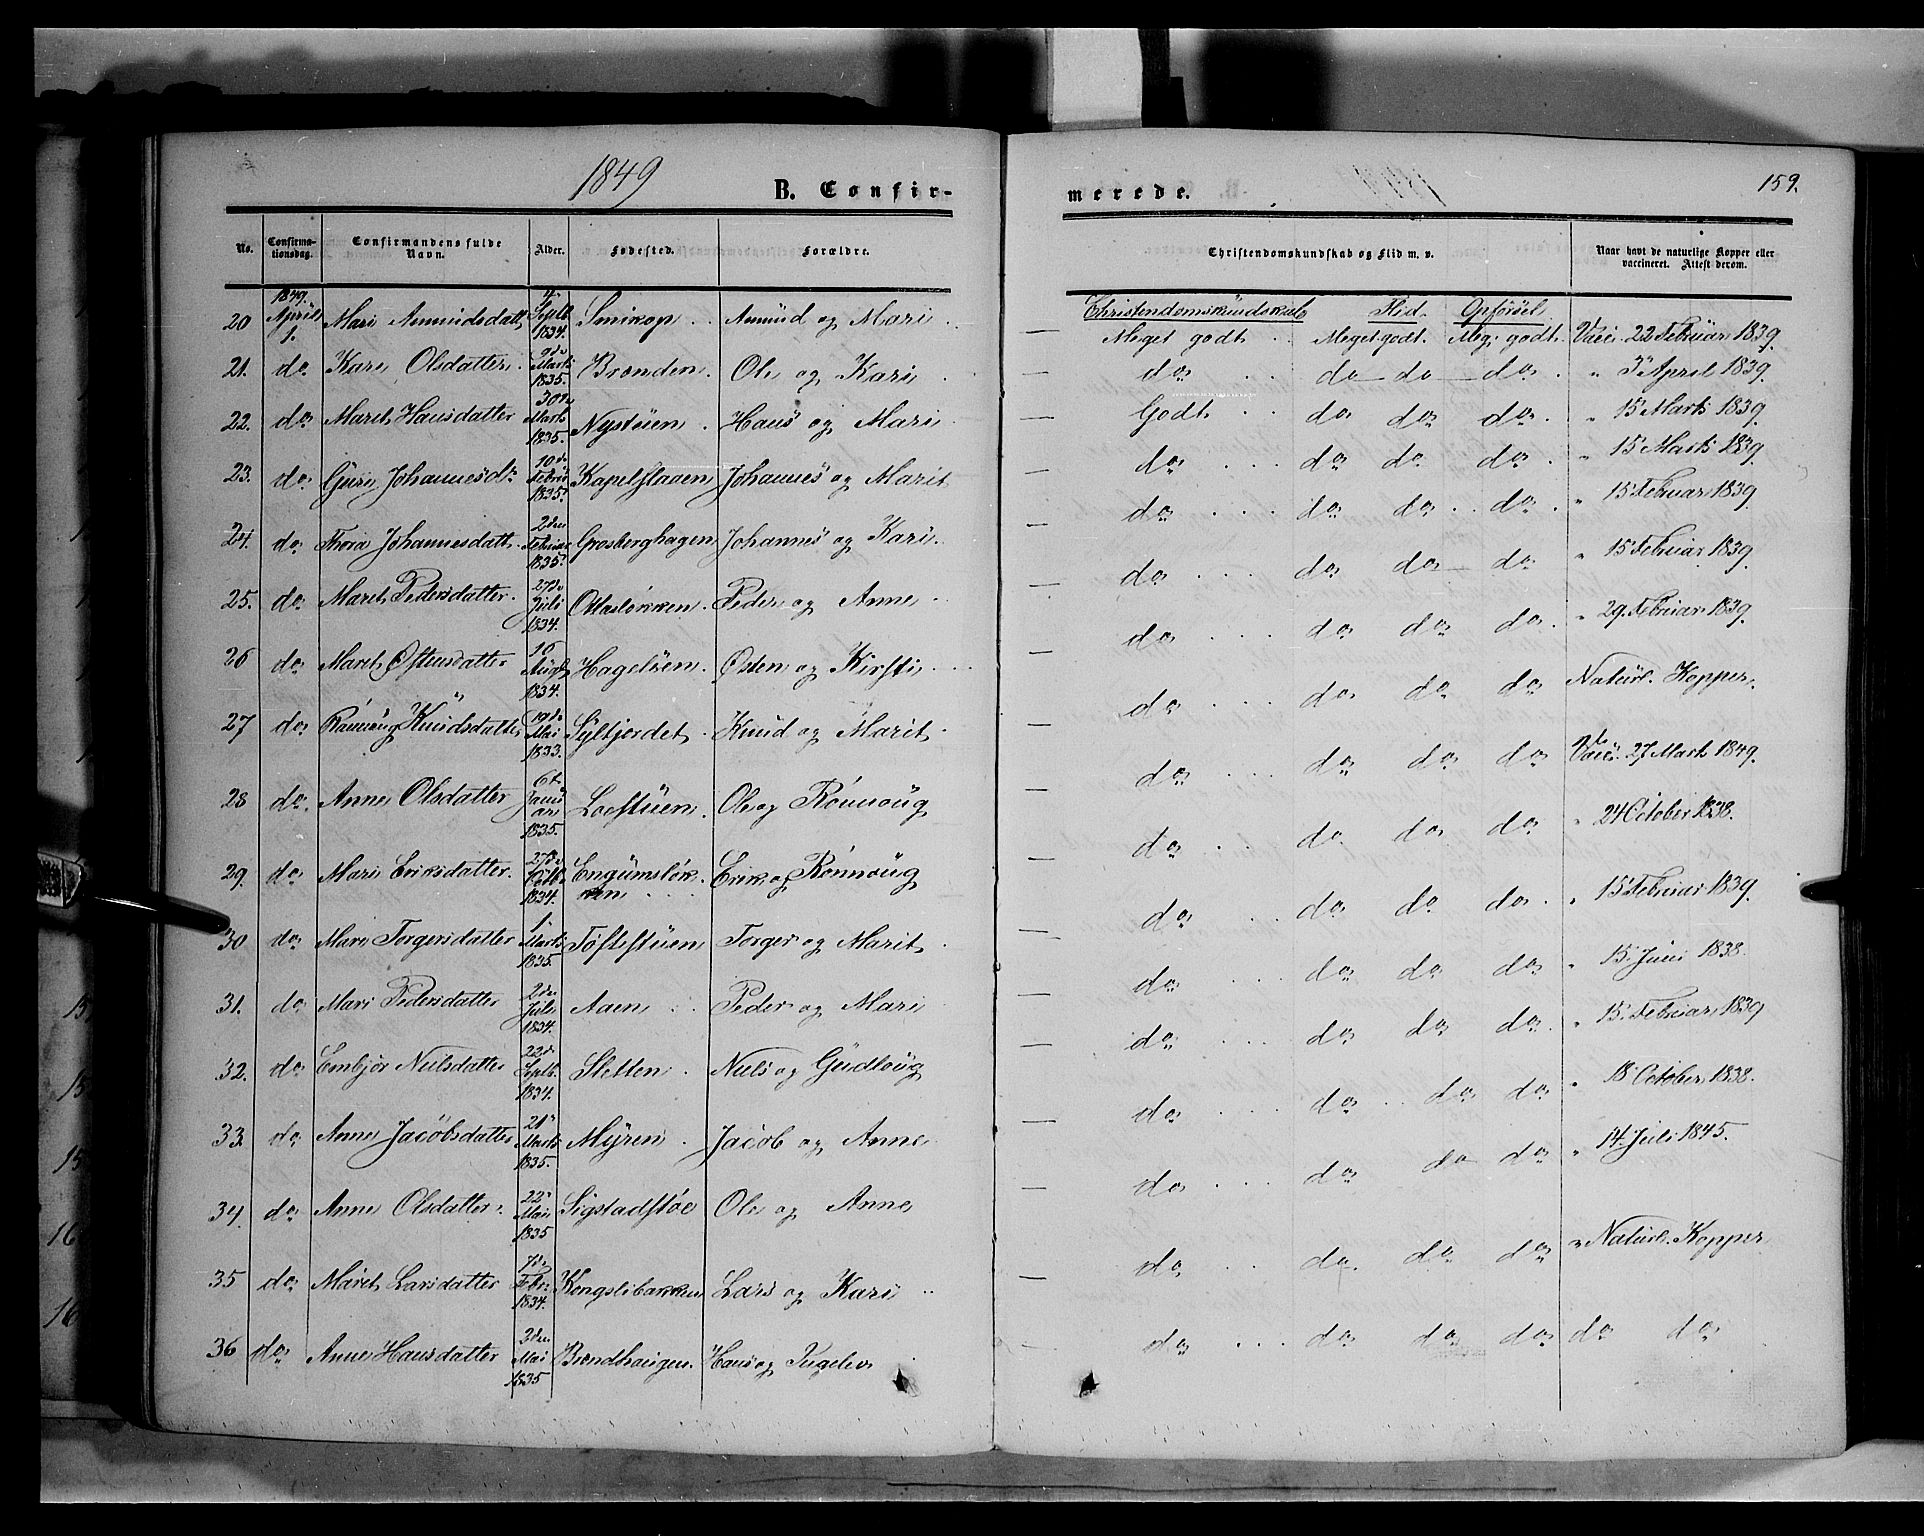 1849
B. Confir-
merede.
159.
No. Confirma-tionsdag. Confirmandens fulde Navn. Alder. Fødested. Forældre. Christendomskundskab og Flid m. v. Naar havt de naturlige Kopper eller vaccineret. Attest derom.
Christendomskundskab Flid. Opførsel
20 1849. April 1. Mari Amundsdatt 4 Septb 1834. Smikop Amund og Mari Meget godt Meget godt. Meg. godt Vacc. 22 Februar 1839.
21. do Kari Olsdatter 9de Marts 1835. Brænden. Ole og Kari do do do do " 3 April 1839.
22. do Marit Hansdatter 30te Marts 1835. Nystuen Hans og Mari Godt do do do " 15 Marts 1839.
23. do Guri Johannesd. 10de Februar 1835. Kapelflaaen Johannes og Marit do do do do " 15 Marts 1839.
24. do Thora Johannesdatt. 2den Februar 1835. Grosberghagen Johannes og Kari do do do do " 15 Februar 1839.
25. do Marit Pedersdatter 27de Juli 1834. Ottaløkken Peder og Anne do do do do " 15 Februar 1839.
26 do Marit Østensdatter 16 Augt 1834. Hageløen Østen og Kirsti do do do do " 29. Februar 1839.
27 do Rønnaug Knudsdatter 19de Mai 1833. Syltjordet Knud og Marit do do do do Naturl. Kopper.
28 do Anne Olsdatter 6te Januar 1835. Loeftuen Ole og Rønnoug do do do do Vacc. 27 Mart 1849.
29. do Mari Eriksdatter 27de Octb 1834. Engumsløkken Erik og Rønnoug do do do do " 24 October 1838.
30 do Mari Torgersdatter 1. Marts 1835. Tofteftuen Torger og Marit do do do do " 15 Februar 1839.
31. do Mari Pedersdatter 2den Juli 1834. Aaen Peder og Mari do do do do " 15. Juni 1838.
32. do Embjør Nielsdatter 22de Septb. 1834. Sletten Niels og Gudloug do do do do " 15. Februar 1839
33. do Anne Jacobsdatter 21 Marts 1835. Myren Jacob og Anne do do do do " 18 October 1838.
34. do Anne Olsdatter 22 Mai 1835 Sigstadstøe Ole og Anne do do do do " 14. Juli 1845.
35 do Marit Larsdatter 7de Febr. 1834. Kongslibakken Lars og Kari do do do do " Naturl. Kopper
36 do Anne Hansdatter 2den Mai 1835 Brændhaugen Hans og Ingelev do do do do do do